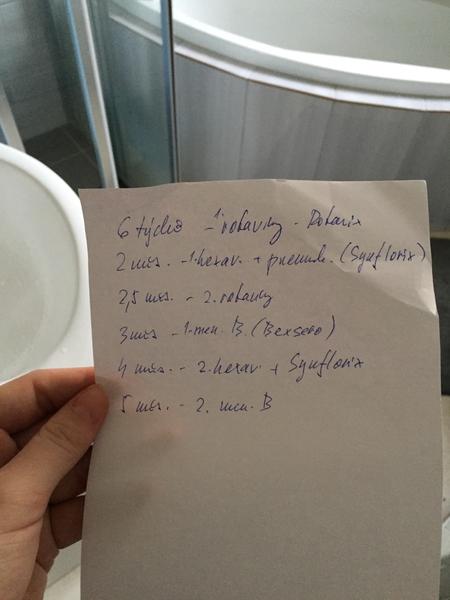 6 týdnů - 1. rotaviry - Rotarix
2 měs. - 1. hexav. + pneumok. (Synflorix)
2,5 měs. - 2. rotaviry
3 měs - 1. men. B. (Bexsero)
4 měs. - 2. hexav. + Synflorix
5 měs. - 2. men. B